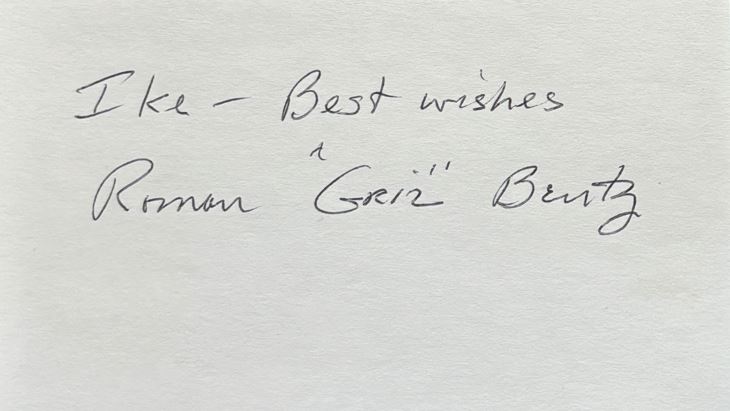 Ike - Best wishes
Roman "Griz" Bentz